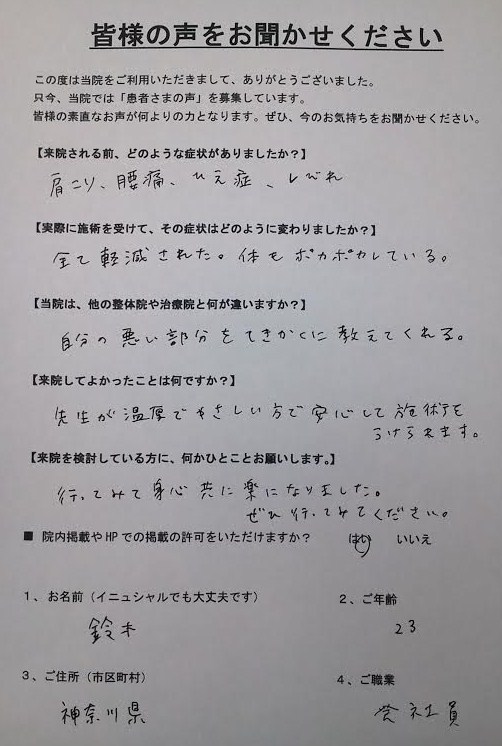 皆様の声をお聞かせください
この度は当院をご利用いただきまして、ありがとうございました。
只今、当院では「患者さまの声」を募集しています。
皆様の素直なお声が何よりの力となります。ぜひ、今のお気持ちをお聞かせください。
【来院される前、どのような症状がありましたか？】
肩こり、腰痛、ひえ症、しびれ
【実際に施術を受けて、その症状はどのように変わりましたか？】
全て軽減された。体もポカポカしている。
【当院は、他の整体院や治療院と何が違いますか？】
自分の悪い部分をてきかくに教えてくれる。
【来院してよかったことは何ですか？】
先生が温厚でやさしい方で安心して施術を
うけられます。
【来院を検討している方に、何かひとことお願いします。】
行ってみて身心共に楽になりました。
ぜひ行ってみてください。
■ 院内掲載やHPでの掲載の許可をいただけますか？ はい いいえ
1、お名前（イニュシャルでも大丈夫です） 2、ご年齢
鈴木 23
3、ご住所（市区町村） 4、ご職業
神奈川県 会社員